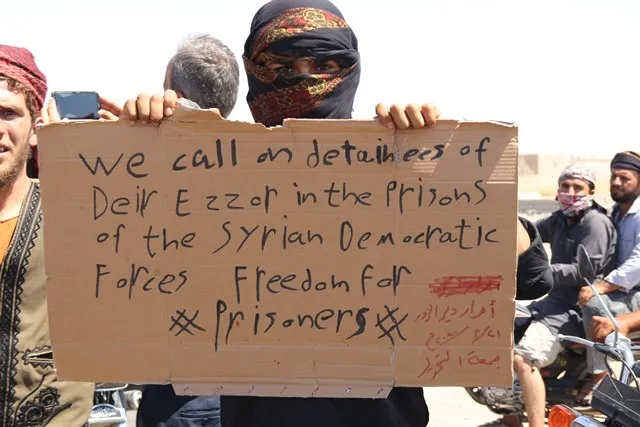 We call on detainees of
Deir Ezzor in the Prisons
of the Syrian Democratic
Forces Freedom for
#Prisoners#
أحرار دير الزور